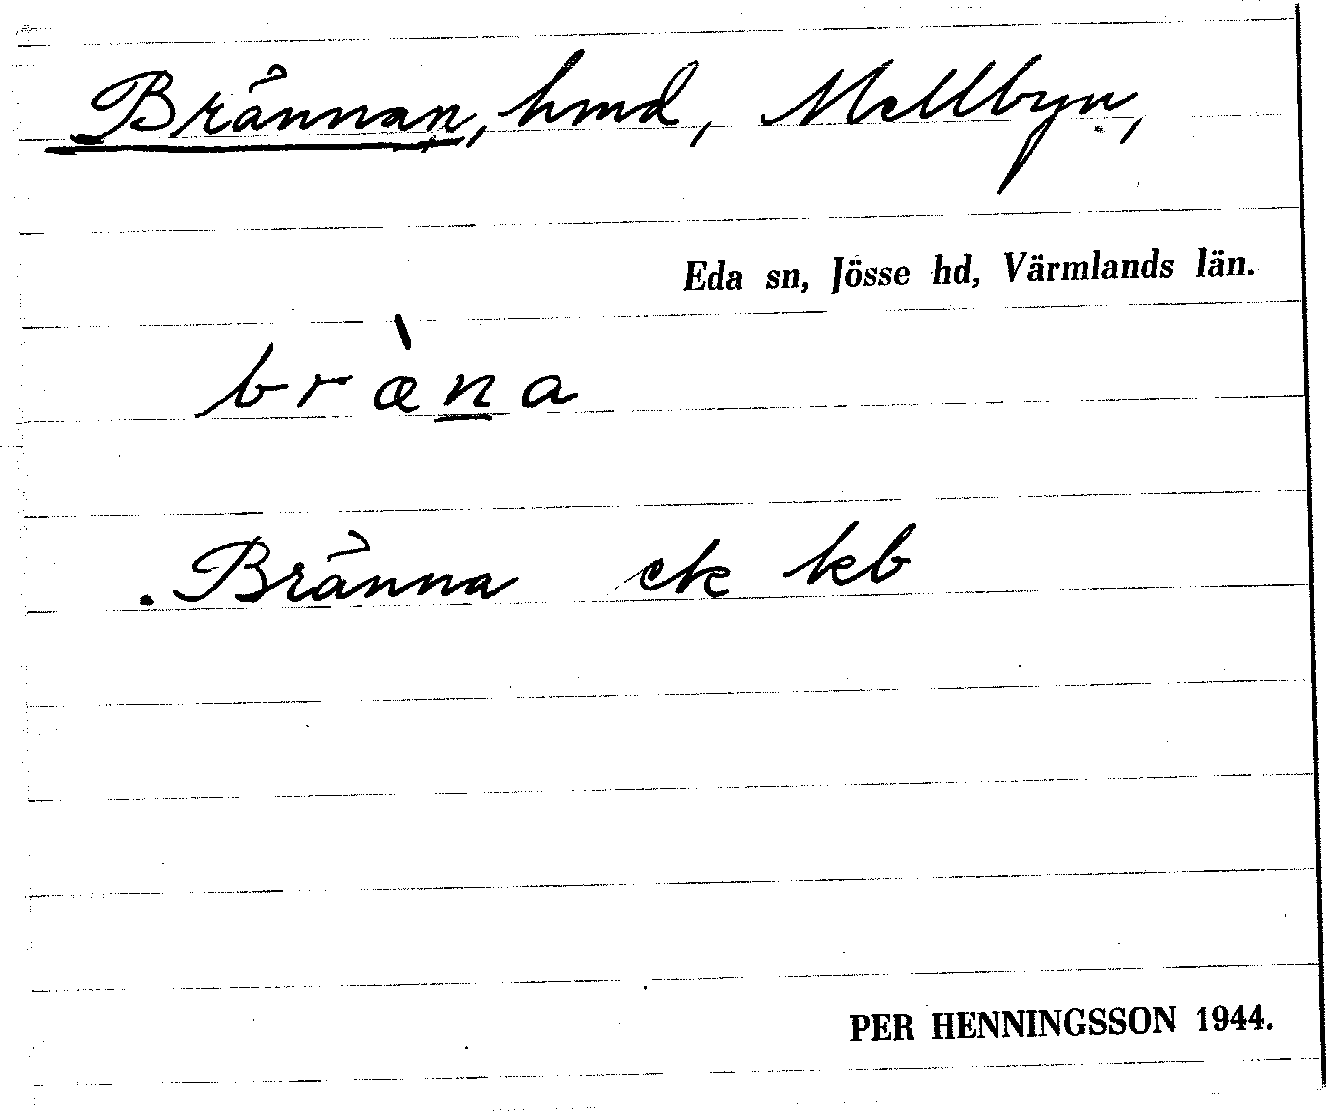 Brännan, hmd, Mellbyn,
Eda sn, Jösse hd, Värmlands län.
bræ̀n̲a
. Bränna ek kb
PER HENNINGSSON 1944.